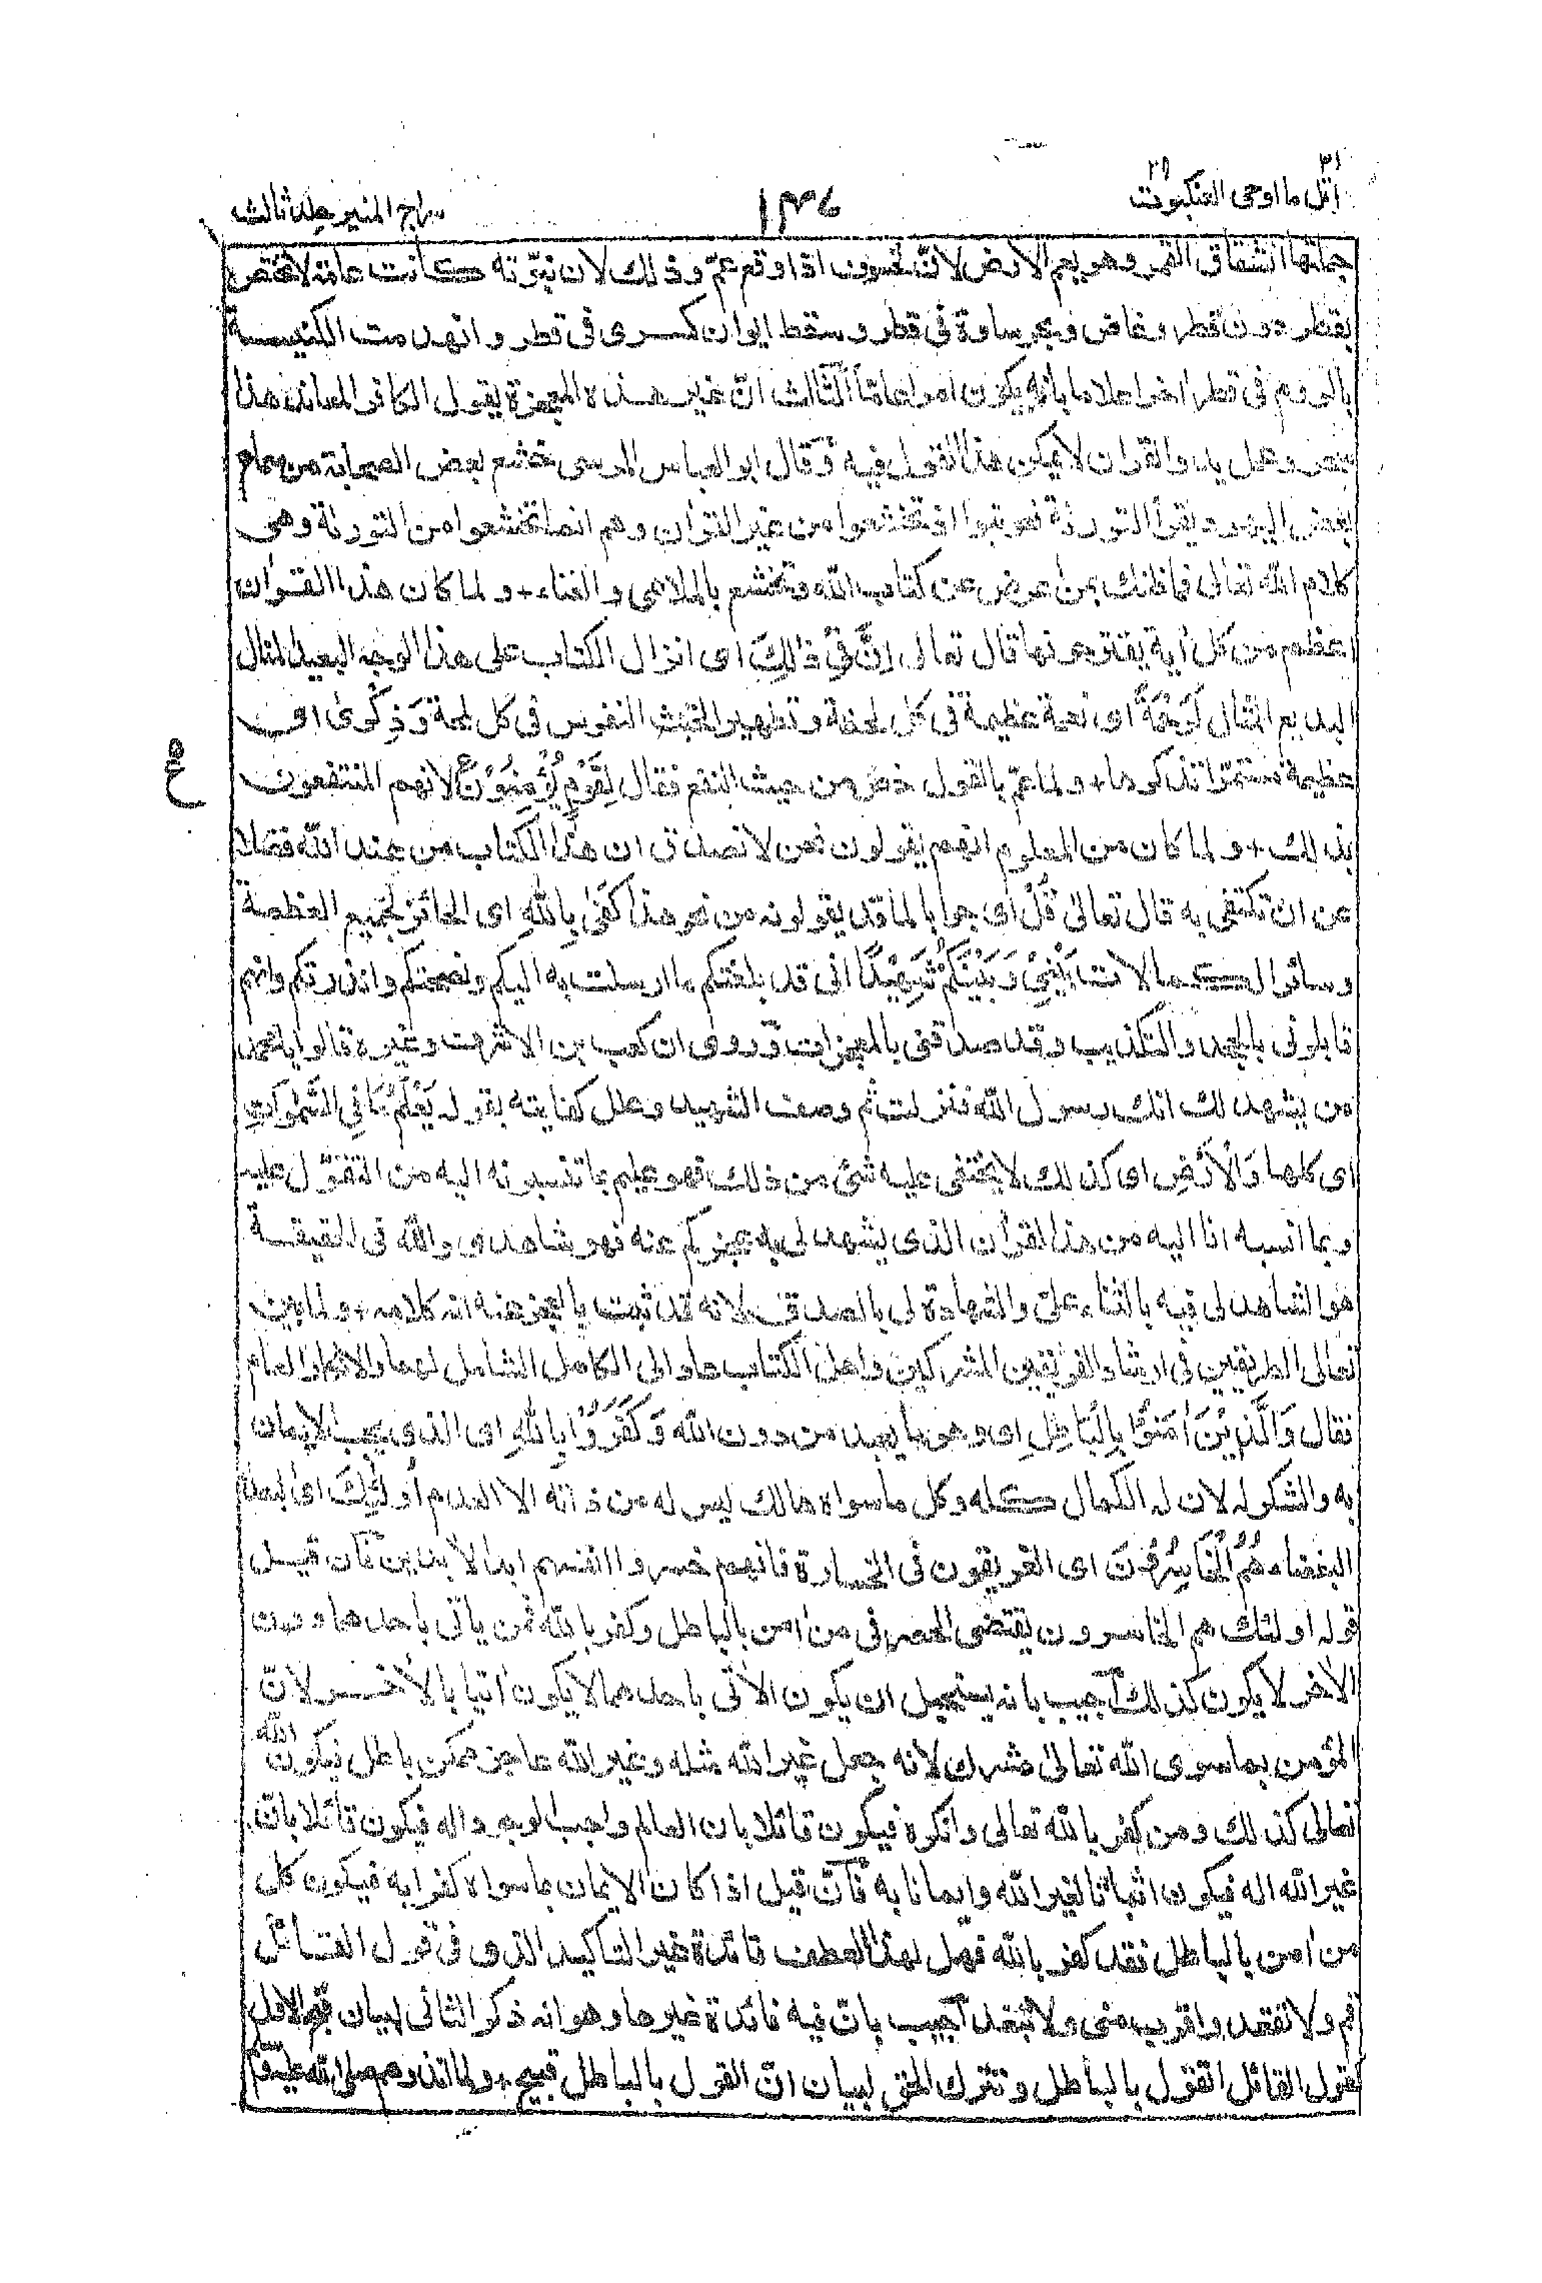 اتل ما اوحى ٢١ العنكبوت ٢٩
١٤٦
سراج المنير جلد ثالث
جملتها انشقاق القمر وهو يعم الارض لان الخسوف اذا وقع عمّ وذلك لان نبوّته كانت عامة لا تختص
بقطر دون قطر وغاض بحر ساوة فى قطر وسقط ايوان كسرى فى قطر وانهدمت الكنيسة
بالروم فى قطر اخر اعلاما بانه يكون امرا عاما الثالث انّ غير هذه المعجزة يقول الكافر المعاند هذا
سحر وعمل يد والقران لا يمكن هذا القول فيه وقال ابو العباس المرسى تخشع بعض الصحابة من سماع
بعض اليهود يقرأ التورٰة فعوتبوا اذ تخشعوا من غير القرأن وهم انما تخشعوا من التورٰة وهى
كلام الله تعالى فما ظنك بمن اعرض عن كتاب الله وتخشع بالملاهى والغناء + ولما كان هذا القرأن
اعظم من كل أية يقترحونها قال تعالى اِنَّ فِىْ ذٰلِكَ اى انزال الكتاب على هذا الوجه البعيد المنال
البديع المثال لَرَحْمَةً اى نعمة عظيمة فى كل لحظة وتطهير الخبث النفوس فى كل لمحة وَذِكْرٰى اى
عظيمة مستمرّا تذكرها + ولما عمّ بالقول خص من حيث النفع فقال لِقَوْمٍ يُّؤْمِنُوْنَ لانهم المنتفعون
بذلك + ولما كان من المعلوم انهم يقولون نحن لا نصدق ان هذا الكتاب من عند الله فضلا
عن ان نكتفى به قال تعالى قُلْ اى جوابا لما قد يقولونه من نحو هذا كَفٰى بِاللهِ اى الحائز لجميع العظمة
وسائر الكمالات بَيْنِىْ وَبَيْنَكُمْ شَهِيْدًا انى قد بلغتكم ما ارسلت به اليكم ونصحتكم وانذرتكم وانهم
قابلونى بالجحد والتكذيب وقد صدقنى بالمعجزات وروى ان كعب بن الاشرف وغيره قالوا يا محمد
من يشهد لك انك رسول الله فنزلت ثم وصف الشهيد وعلل كفايته بقوله يَعْلَمُ مَا فِى السَّمٰوٰتِ
اى كلها وَالْاَرْضِ اى كذلك لا يخفى عليه شئ من ذلك فهو عليم بما تنسبونه اليه من التقوّل عليه
وبما انسبه انا اليه من هذا القرأن الذى يشهد لى به عجزكم عنه فهو شاهدى والله فى الحقيقة
هو الشاهد لى فيه بالثناء علىّ والشهادة لى بالصدق لانه قد ثبت بالعجز عنه انه كلامه + ولما بين
تعالى الطريقين فى ارشاد الفريقين المشركين واهل الكتاب عاد الى الكامل الشامل لهما والانكار العام
فقال وَالَّذِيْنَ اٰمَنُوْا بِالْبَاطِلِ اى وهو ما يعبد من دون الله وَكَفَرُوْا بِاللهِ اى الذى يجب الايمان
به والشكر له لان له الكمال كله وكل ما سواه هالك ليس له من ذاته الا العدم اُولٰئِكَ اى البعداء
البغضاء هُمُ الْخٰسِرُوْنَ اى العريقون فى الخسارة فانهم خسروا انفسهم ابد الأبدين فان قيل
قوله اولئك هم الخاسرون يقتضى الحصر فى من امن بالباطل وكفر بالله فمن ياتى باحدهما دون
الأخر لا يكون كذلك اجيب بانه يستحيل ان يكون الأتى باحدهما لا يكون أتيا بالأخر لانّ
المؤمن بما سوى الله تعالى مشرك لانه جعل غير الله مثله وغير الله عاجز ممكن باطل فيكون الله
تعالى كذلك ومن كفر بالله تعالى وانكره فيكون قائلا بان العالم واجب الوجود اله فيكون قائلا بانّ
غير الله اله فيكون اثباتا لغير الله وايمانا به فان قيل اذا كان الايمان بما سواه كفرا به فيكون كل
من امن بالباطل فقد كفر بالله فهل لهذا العطف فائدة غير التاكيد الذى فى قول القائل
قم ولا تقعد واقرب منى ولا تبعد اجيب بانّ فيه فائدة غيرها وهو انه ذكر الثانى لبيان قبح الاول
كقول القائل اتقول بالباطل وتترك الحق لبيان انّ القول بالباطل قبيح + ولما انذرهم صلى الله عليه وسلم
ع